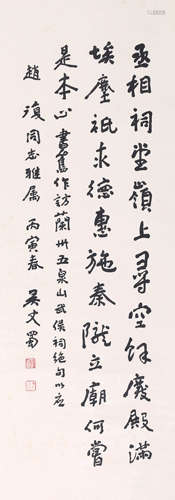 丞相祠堂嶺上尋空餘廢殿滿
埃塵祇求德惠施秦隴立廟何嘗
是本心 書舊作訪蘭州五泉山武侯祠絕句以應
趙瓊同志雅属 丙寅春 吳丈蜀